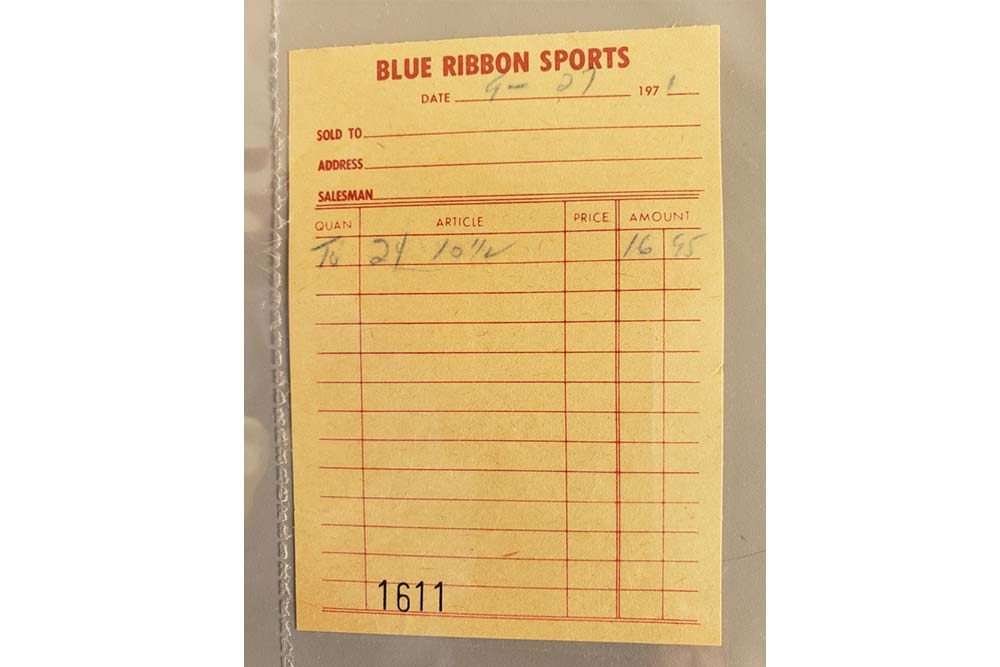 BLUE RIBBON SPORTS
DATE 9- 27 1971
SOLD TO
ADDRESS
SALESMAN
QUAN ARTICLE PRICE AMOUNT
24 10 1/2 16 95
1611